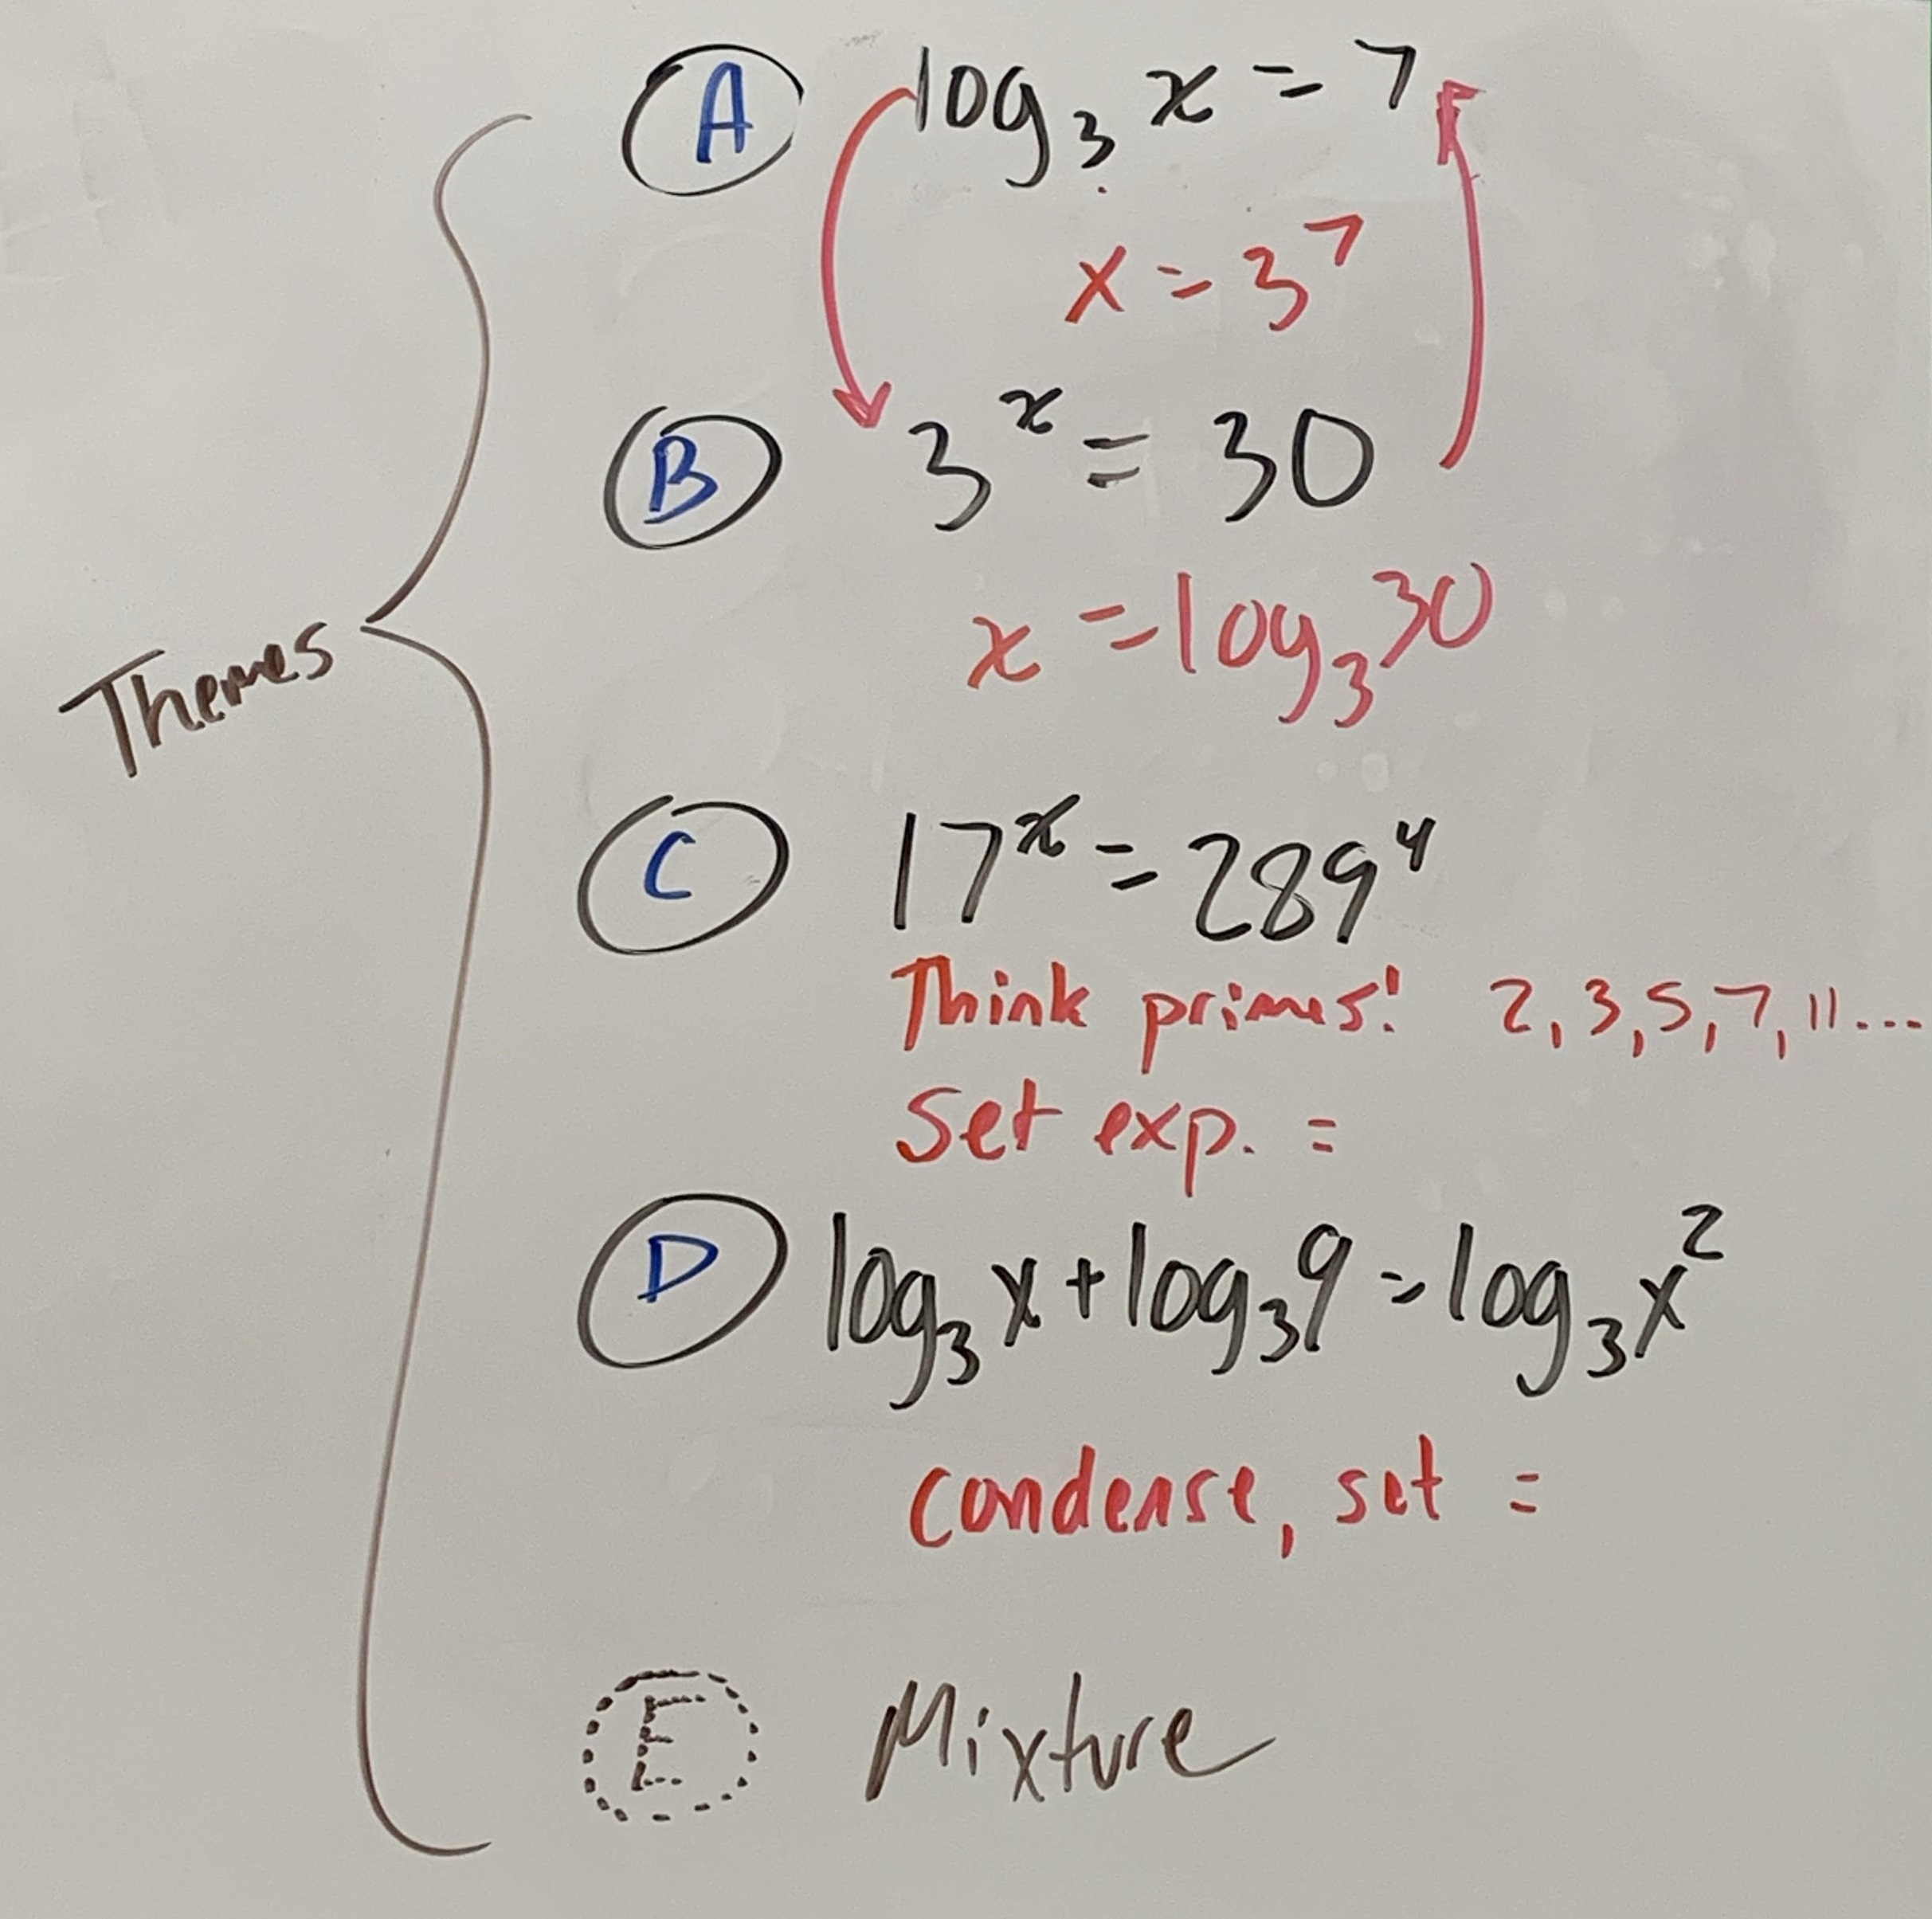 Themes
A log₃ x = 7
x = 3⁷
B 3ˣ = 30
x = log₃30
C 17ˣ = 289⁴
Think primes! 2, 3, 5, 7, 11...
Set exp. =
D log₃x + log₃9 = log₃x²
condense, set =
E Mixture